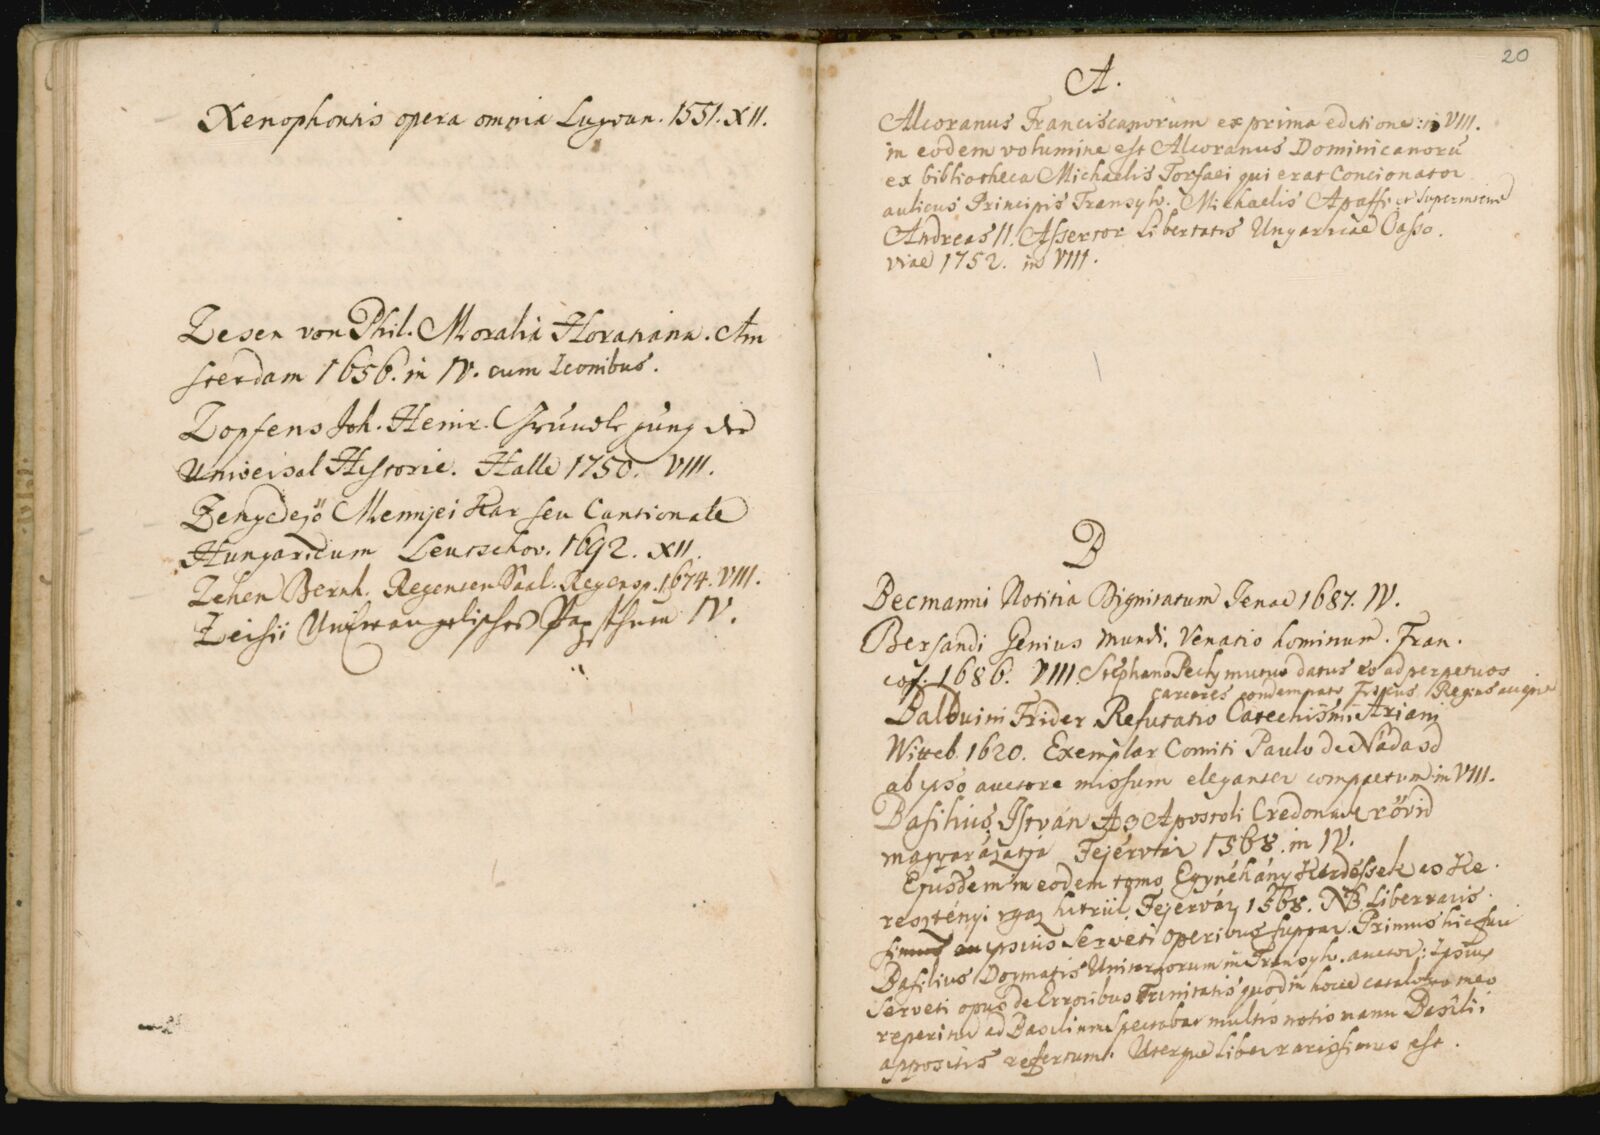 Xenophontis opera omnia Lugdun. 1551. XII.
Zesen von Phil. Moralia Horatiana. Am
sterdam 1656. in IV. cum Iconibus.
Zopfens Joh. Henr. Grundlegung der
Universal Historie. Halle 1750. VIII.
Zengedejö Mennjei Kar seu Cantionale
Hungaricum Leutschov. 1692. XII.
Zehen Bernh. Regensp. 1674. VIII.
Zeisii Papsthum IV.
20
A.
Alcoranus Franciscanorum ex prima editione: in VIII.
in eodem volumine est Alcoranus Dominicanorū
ex bibliotheca Michaelis Tofaei qui erat Concionator
aulicus Principis Transylv. Michaelis Apaffi
Andreas II. Assertor Libertatis Ungaricae Casso.
viae 1752. in VIII.
B
Becmanni Notitia Dignitatum Jenae 1687. IV.
Bersandi Genius mundi. Venatio hominum. Fran.
cof: 1686. VIII. Stephano Pechy mutuo datus eo ad perpetuos
carceres
Balduini Frider. Refutatio Catechismi Ariani
Witteb. 1620. Exemplar Comiti Paulo de Nadasd
ab ipso auctore missum eleganter compactum in VIII.
Basilius István Az Apostoli Credonac rövid
magyarázatja Fejérvár 1568. in IV.
Ejusdem in eodem tomo Egynéhány Kerdéssek es Ke
resztényi igaz hitrül. Fejérvár 1568. NB. Liber raris
ipsius Serveti operibus suppar. Primus hic fuit
Basilius Dogmatis Unitariorum in Transylv. auctor: Ipsius
Serveti opus de Erroribus Trinitatis quod in hocce catalogo meo
reperitur ad Basilium spectabat multis notis manu Basilii
appositis refertum. Uterque liber rarissimus est.